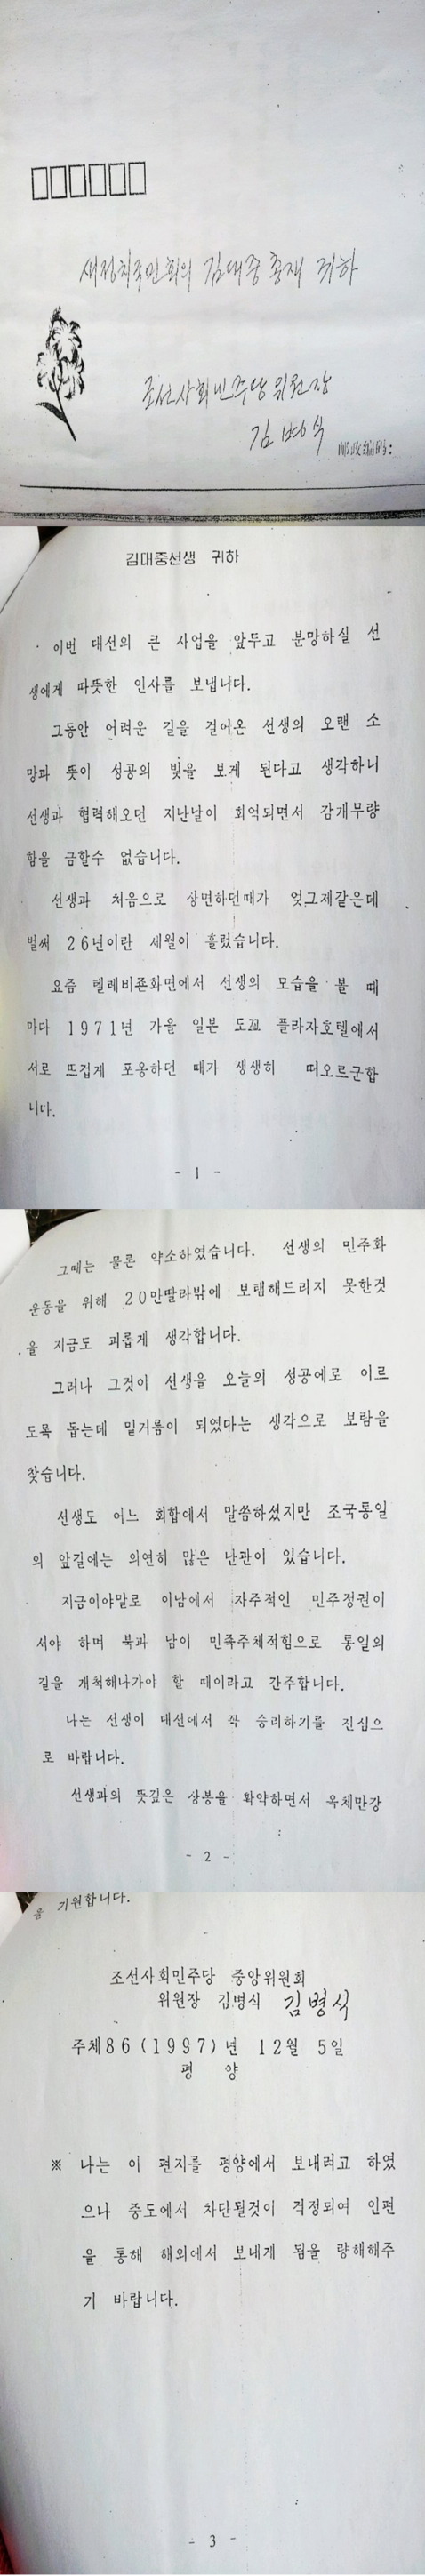 새정치국민회의 김대중 총재 귀하
조선사회민주당 위원장
김병식
邮政编码:
김대중선생 귀하
이번 대선의 큰 사업을 앞두고 분망하실 선
생에게 따뜻한 인사를 보냅니다.
그동안 어려운 길을 걸어온 선생의 오랜 소
망과 뜻이 성공의 빛을 보게 된다고 생각하니
선생과 협력해오던 지난날이 회억되면서 감개무량
함을 금할수 없습니다.
선생과 처음으로 상면하던때가 엊그제같은데
벌써 26년이란 세월이 흘렀습니다.
요즘 텔레비죤화면에서 선생의 모습을 볼 때
마다 1971년 가을 일본 도꾜 플라자호텔에서
서로 뜨겁게 포옹하던 때가 생생히 떠오르군합
니다.
- 1 -
그때는 물론 약소하였습니다. 선생의 민주화
운동을 위해 20만딸라밖에 보탬해드리지 못한것
을 지금도 괴롭게 생각합니다.
그러나 그것이 선생을 오늘의 성공에로 이르
도록 돕는데 밑거름이 되였다는 생각으로 보람을
찾습니다.
선생도 어느 회합에서 말씀하셨지만 조국통일
의 앞길에는 의연히 많은 난관이 있습니다.
지금이야말로 이남에서 자주적인 민주정권이
서야 하며 북과 남이 민족주체적힘으로 통일의
길을 개척해나가야 할 때이라고 간주합니다.
나는 선생이 대선에서 꼭 승리하기를 진심으
로 바랍니다.
선생과의 뜻깊은 상봉을 확약하면서 옥체만강
- 2 -
을 기원합니다.
조선사회민주당 중앙위원회
위원장 김병식 김병식
주체86(1997)년 12월 5일
평 양
※ 나는 이 편지를 평양에서 보내려고 하였
으나 중도에서 차단될것이 걱정되여 인편
을 통해 해외에서 보내게 됨을 량해해주
기 바랍니다.
- 3 -